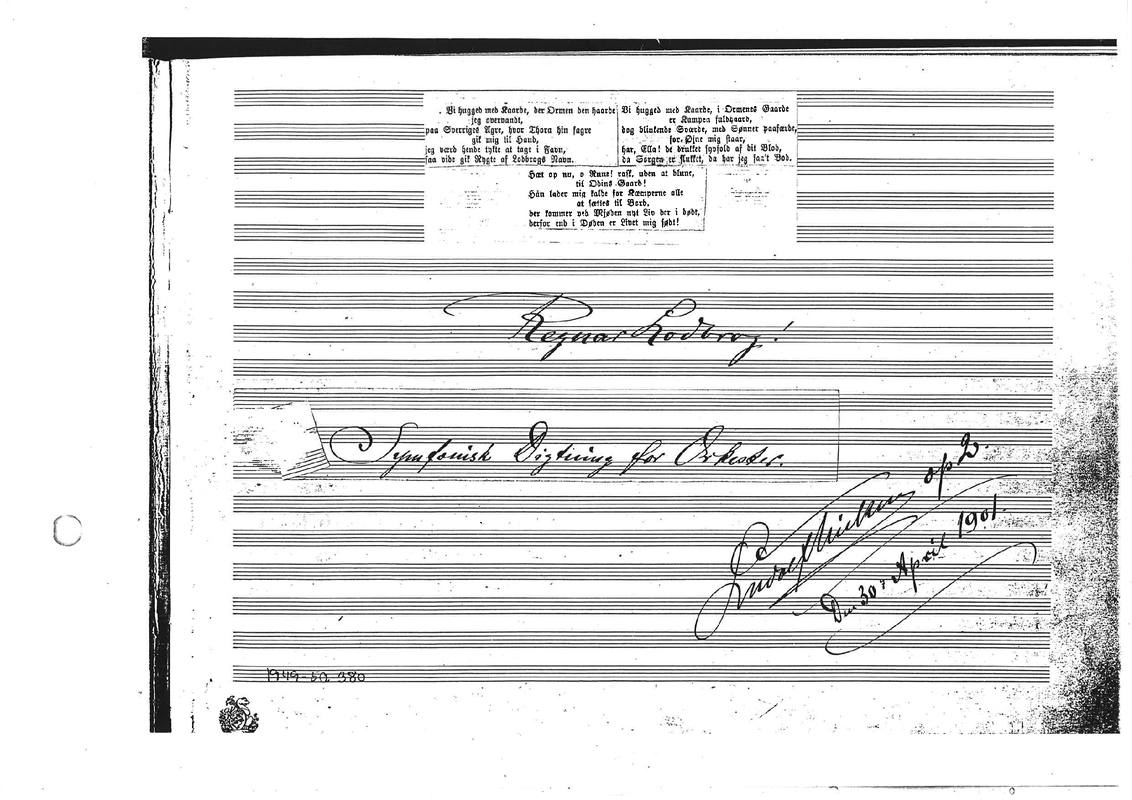 Vi hugged med Kaarde, der Ormen den haarde
jeg overvandt,
paa Sverriges Agre, hvor Thora hin fagre
gik mig til Haand,
jeg værd hende tykte at tage i Favn,
saa vide gik Rygte af Lodbrogs Navn.
Vi hugged med Kaarde, i Ormenes Gaarde
er Kampen fuldhaard,
dog blinkende Sværde, med Sønner paafærde,
for Øjne mig staar,
har, Ella! de drukket syvfold af dit Blod,
da Sorgen er slukket, da har jeg faa't Bod.
Hæt op nu, o Rune! rask, uden at blune,
til Odins Gaard!
Han lader mig kalde for Kæmperne alle
at sættes til Bord,
der kommer ved Mjøden nyt Liv der i dødt,
derfor end i Døden er Livet mig født!
Regnar Lodbrog!
Symfonisk Digtning for Orkester.
Ludolf Nielsen op 2.
Den 30' April 1901.
1949-50. 380